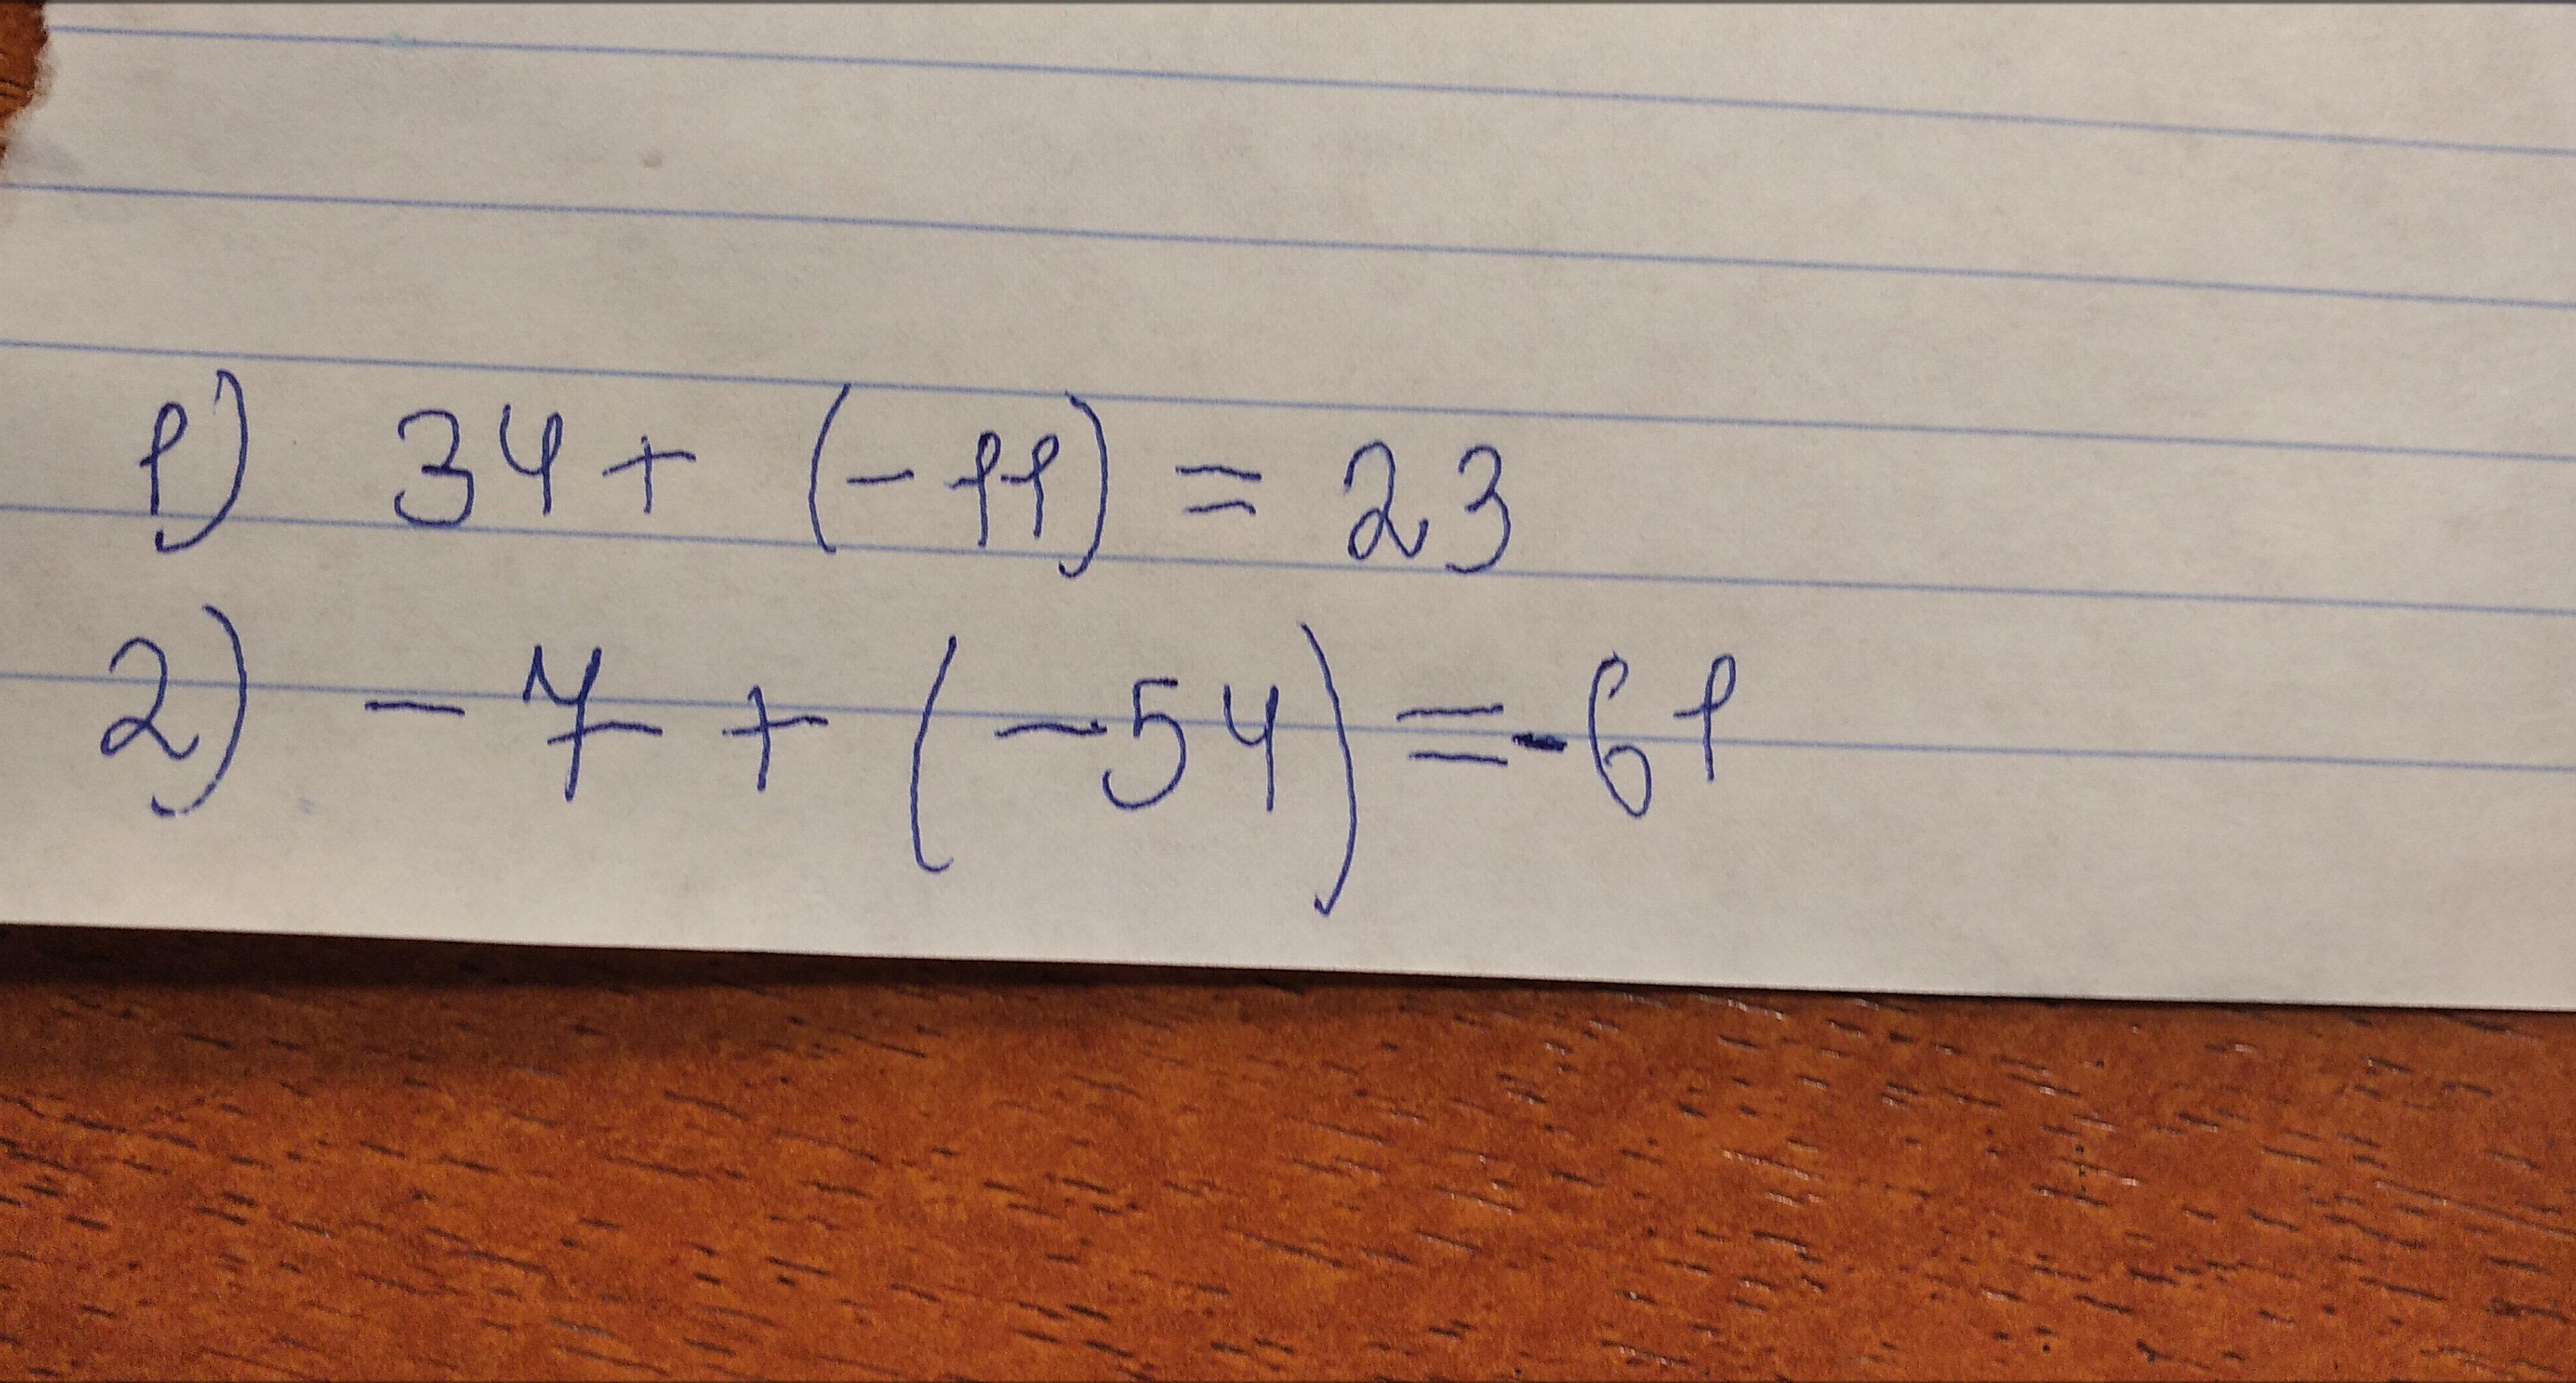 1) 34 + (-11) = 23
2) -7 + (-54) = -61